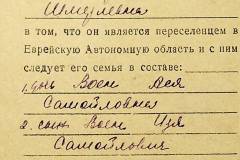 Шмулевна
в том, что он является переселенцем в
Еврейскую Автономную область и с ним
следует его семья в составе:
1. дочь Воен Ася
Самойловна
2. сын Воен Изя
Самойлович